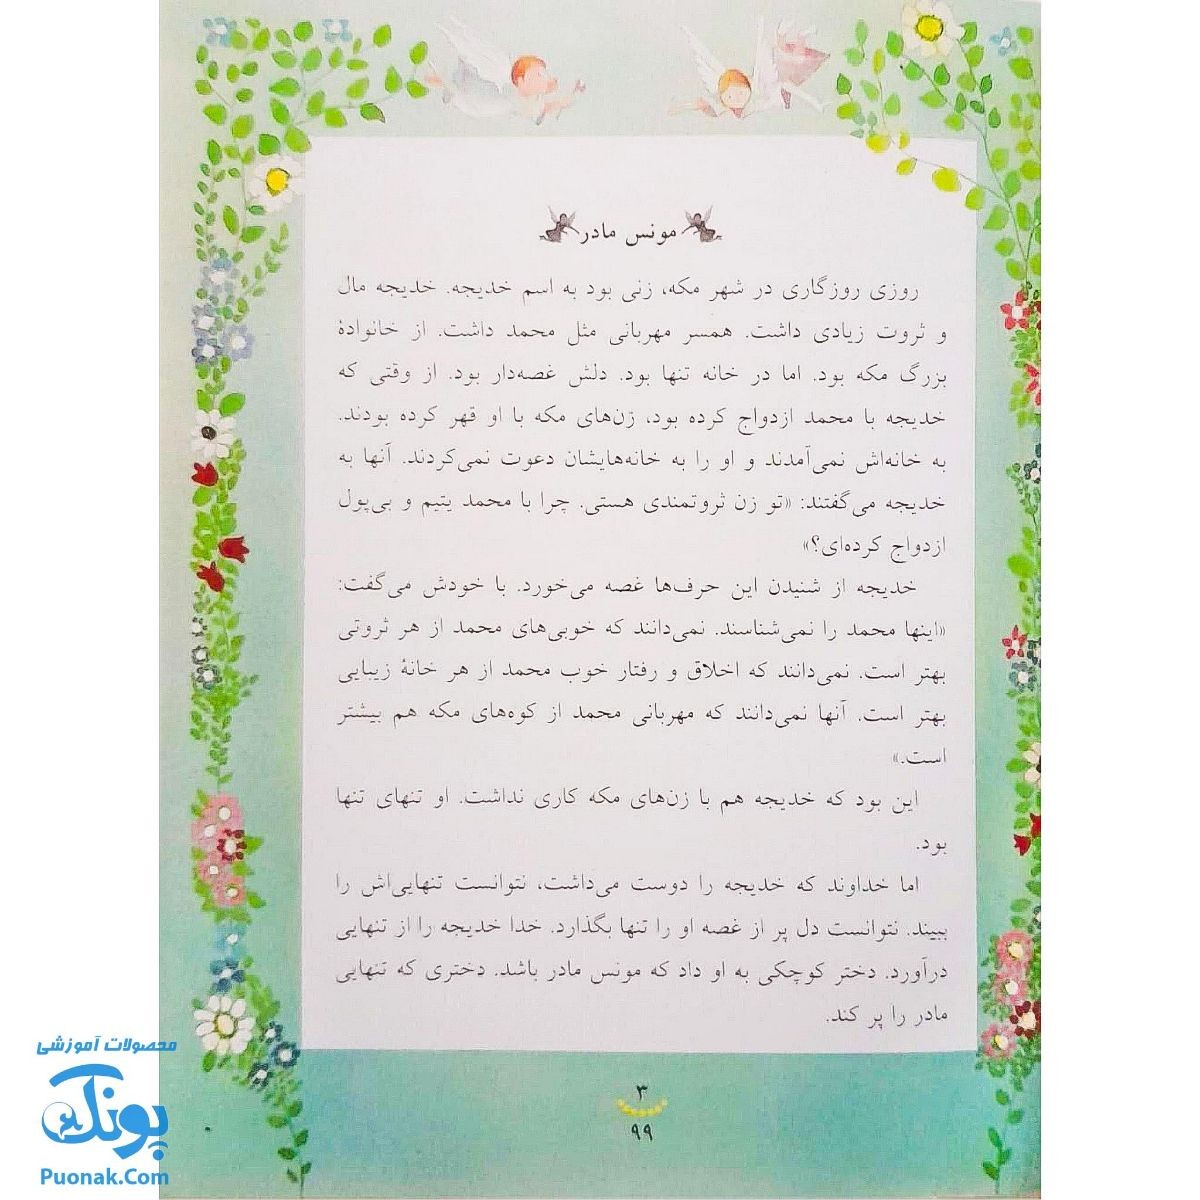 مونس مادر
روزی روزگاری در شهر مکه، زنی بود به اسم خدیجه. خدیجه مال
و ثروت زیادی داشت. همسر مهربانی مثل محمد داشت. از خانوادهٔ
بزرگ مکه بود. اما در خانه تنها بود. دلش غصه‌دار بود. از وقتی که
خدیجه با محمد ازدواج کرده بود، زن‌های مکه با او قهر کرده بودند.
به خانه‌اش نمی‌آمدند و او را به خانه‌هایشان دعوت نمی‌کردند. آنها به
خدیجه می‌گفتند: «تو زن ثروتمندی هستی. چرا با محمد یتیم و بی‌پول
ازدواج کرده‌ای؟»
خدیجه از شنیدن این حرف‌ها غصه می‌خورد. با خودش می‌گفت:
«اینها محمد را نمی‌شناسند. نمی‌دانند که خوبی‌های محمد از هر ثروتی
بهتر است. نمی‌دانند که اخلاق و رفتار خوب محمد از هر خانهٔ زیبایی
بهتر است. آنها نمی‌دانند که مهربانی محمد از کوه‌های مکه هم بیشتر
است.»
این بود که خدیجه هم با زن‌های مکه کاری نداشت. او تنهای تنها
بود.
اما خداوند که خدیجه را دوست می‌داشت، نتوانست تنهایی‌اش را
ببیند. نتوانست دل پر از غصه او را تنها بگذارد. خدا خدیجه را از تنهایی
درآورد. دختر کوچکی به او داد که مونس مادر باشد. دختری که تنهایی
مادر را پر کند.
۳
۹۹
محصولات آموزشی
پونک
Puonak.Com